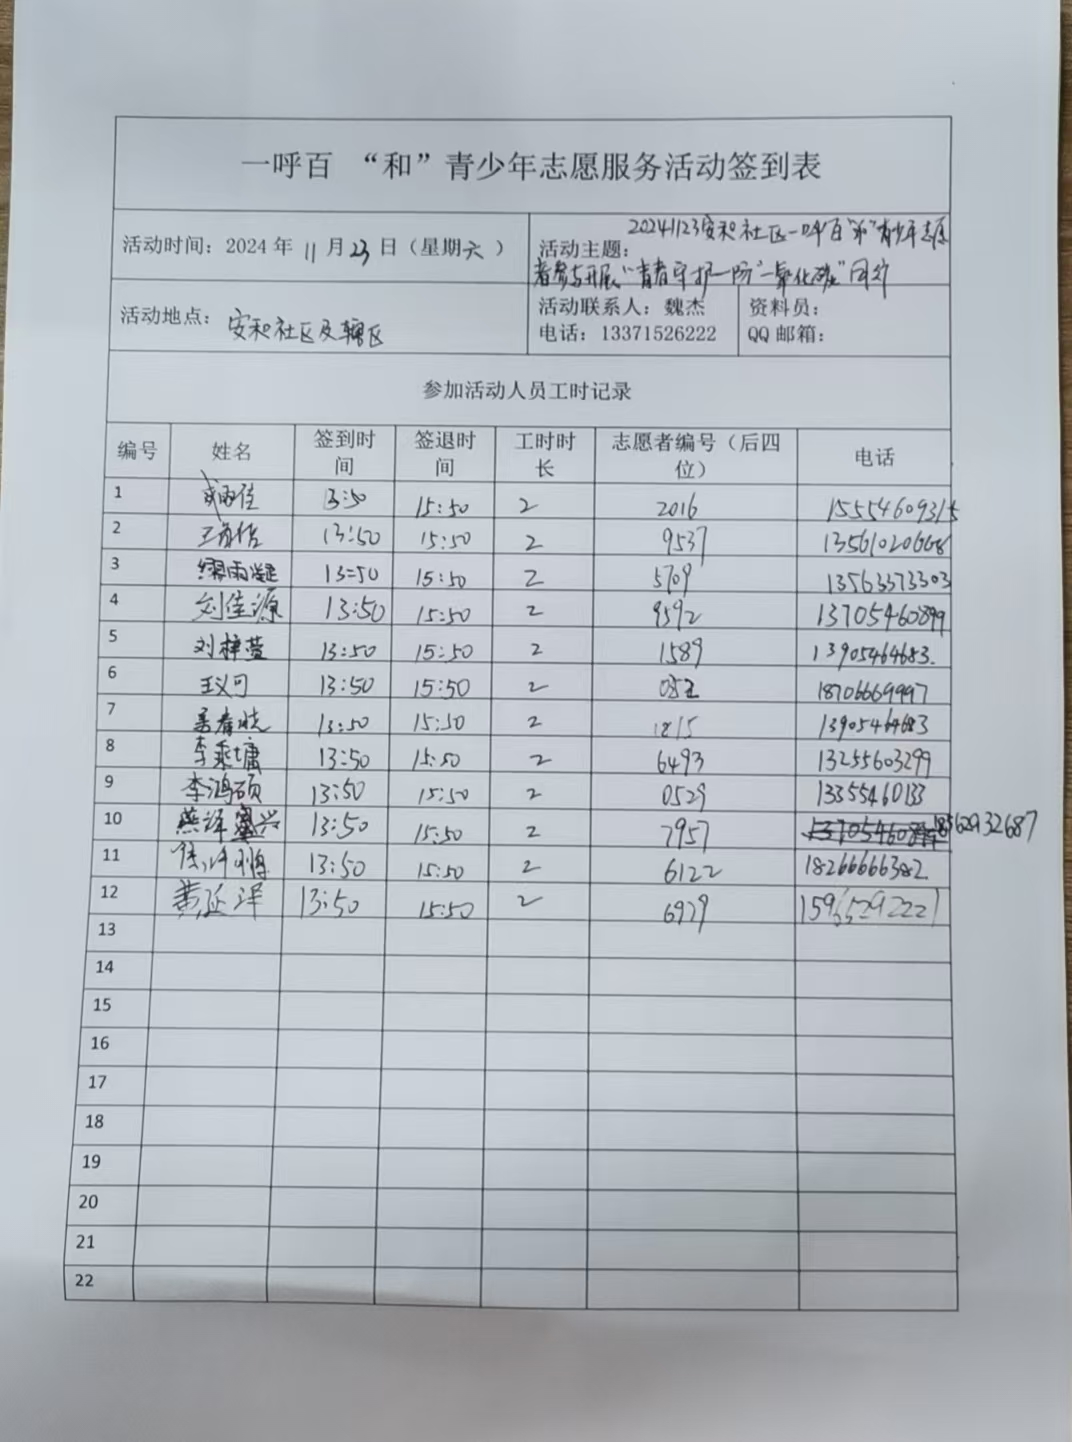 一呼百 “和”青少年志愿服务活动签到表
活动时间：2024 年 11 月 23 日（星期六 ）
活动主题：20241123安和社区一呼百“和”青少年志愿
者参与开展“青春守护一防“一氧化碳”同行
活动地点：安和社区及辖区
活动联系人：魏杰
电话：13371526222
资料员：
QQ 邮箱：
参加活动人员工时记录
编号 姓名 签到时间 签退时间 工时时长 志愿者编号（后四位） 电话
1 成雨佳 13:50 15:50 2 2016 15554609315
2 13:50 15:50 2 9537 13561020668
3 缪雨凝 13:50 15:50 2 5709 13563373303
4 刘佳源 13:50 15:50 2 9592 13705460899
5 刘梓萱 13:50 15:50 2 1589 13905464683.
6 王义可 13:50 15:50 2 18706669997
7 13:50 15:50 2 1815 13905464683
8 李秉墉 13:50 15:50 2 6493 13255603299
9 李鸿硕 13:50 15:50 2 0529 13355460133
10 燕泽 兴 13:50 15:50 2 7957 18562932687
11 13:50 15:50 2 6122 18266666382
12 黄延泽 13:50 15:50 2 6979 15965292221
13
14
15
16
17
18
19
20
21
22